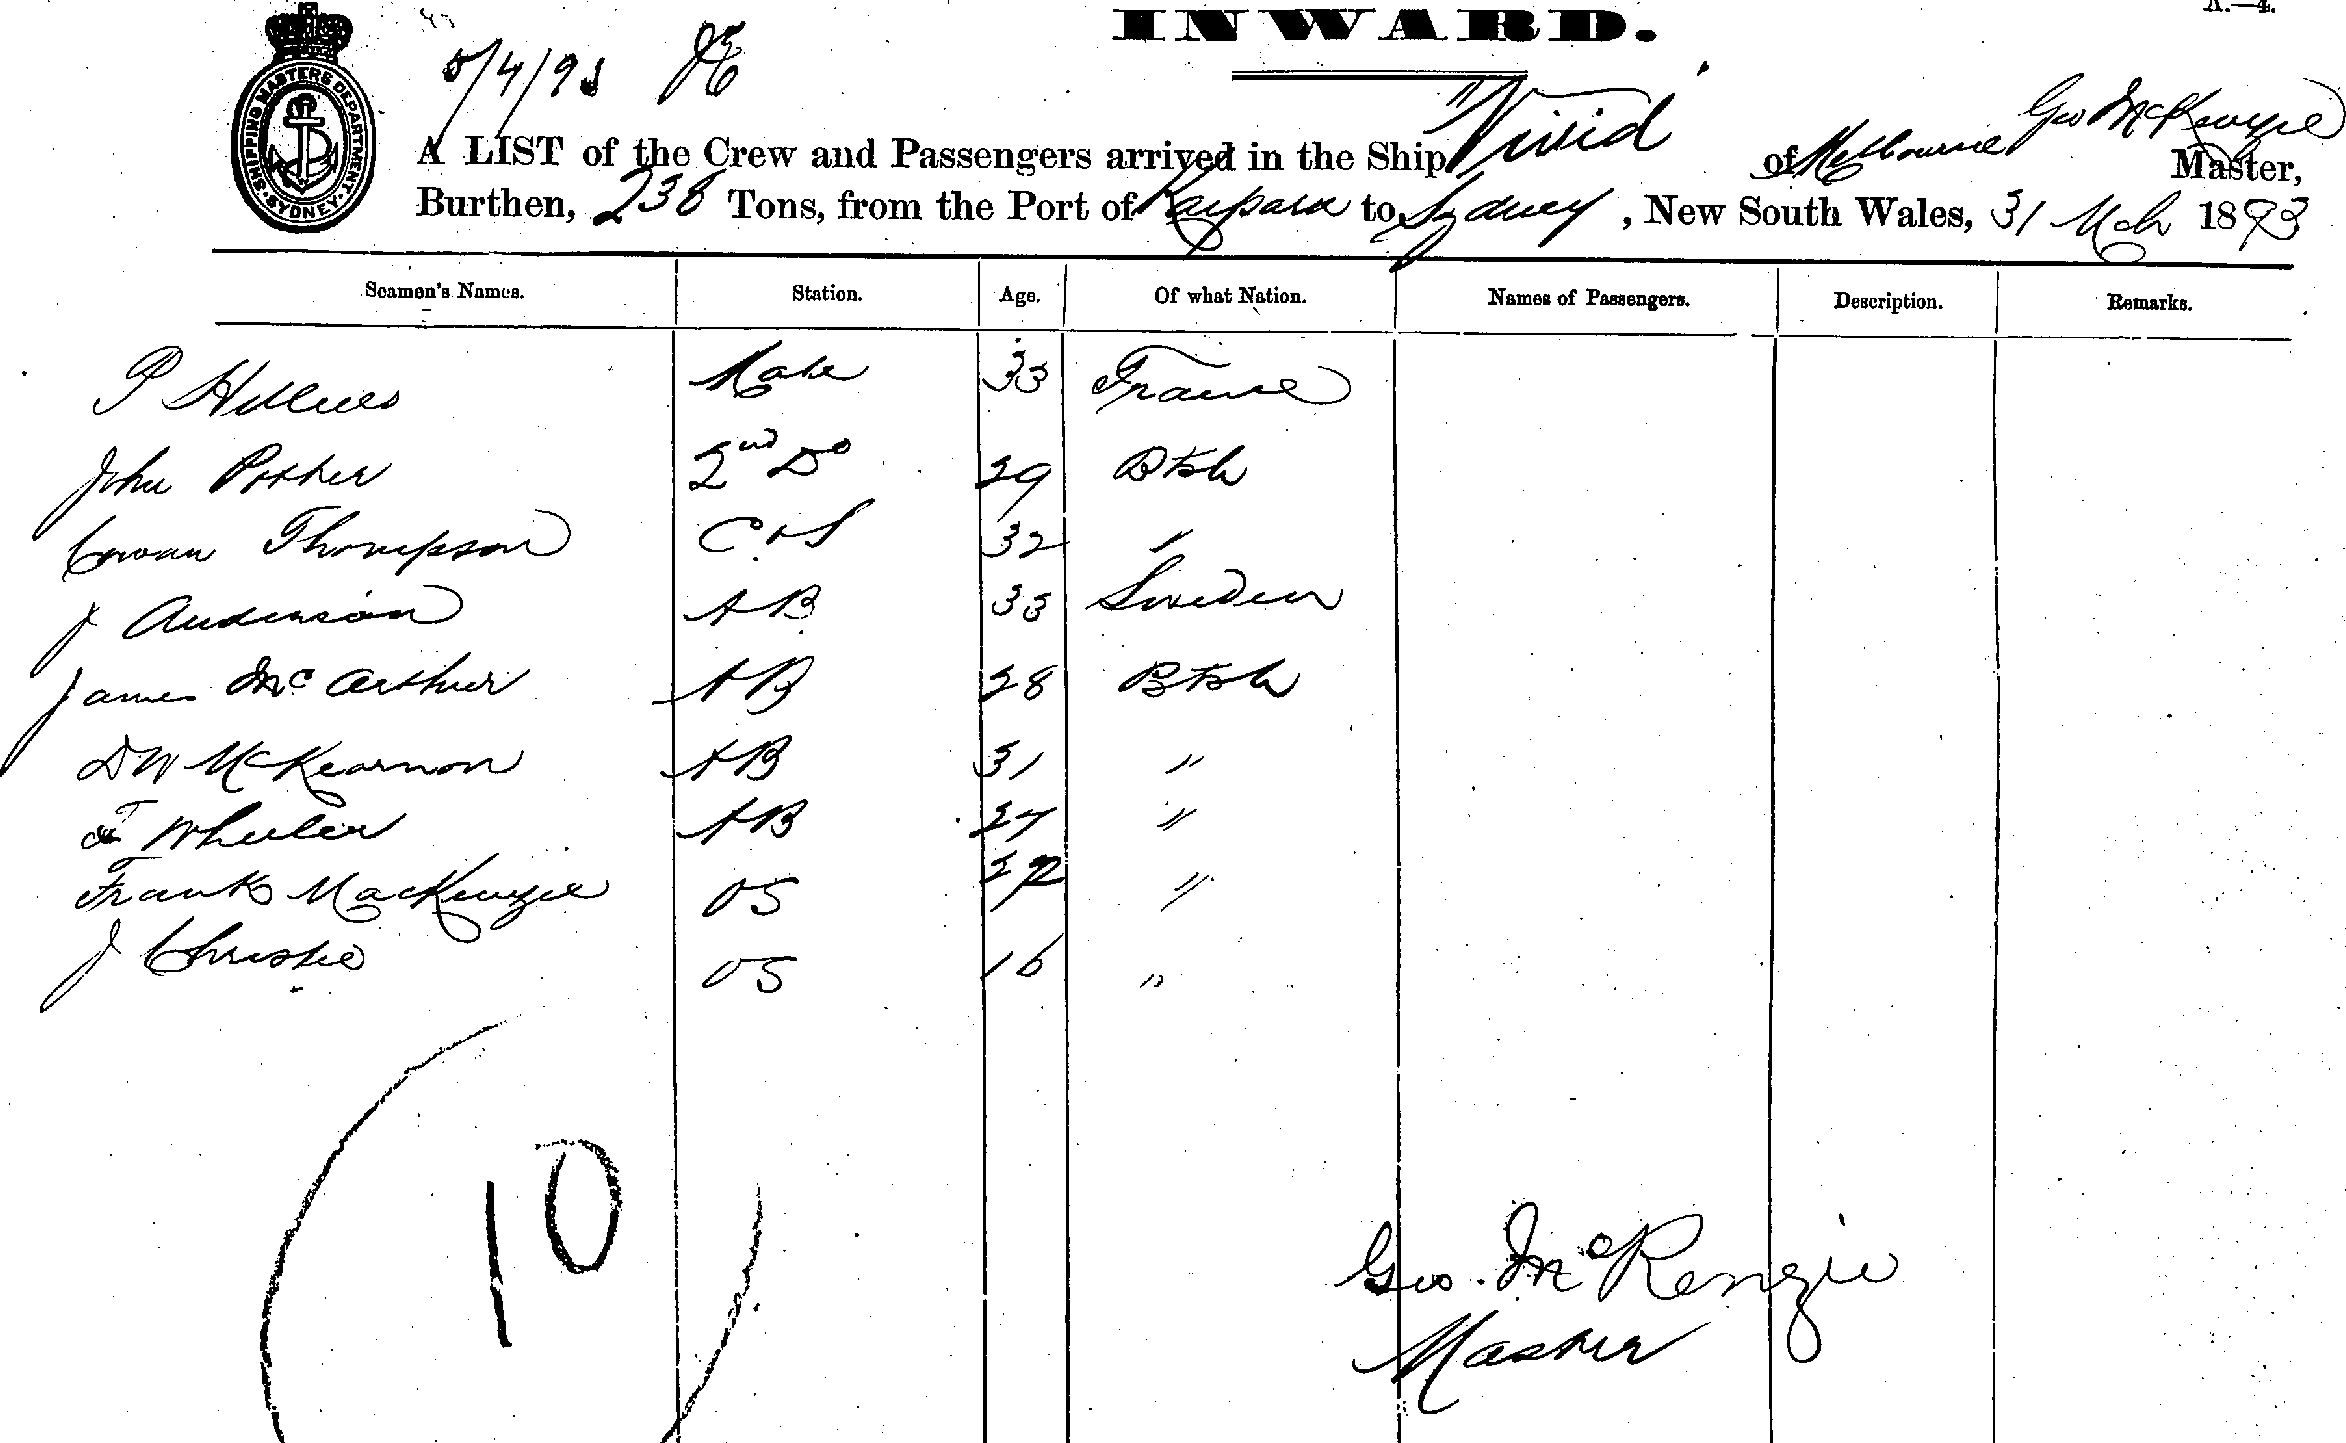 INWARD.
A.—4.
5/4/93
SHIPPING MASTERS DEPARTMENT · SYDNEY ·
A LIST of the Crew and Passengers arrived in the Ship "Vivid" of Melbourne Geo McKenzie Master,
Burthen, 238 Tons, from the Port of Kaipara to Sydney, New South Wales, 31 Mch 1893
Seamen's Names. Station. Age. Of what Nation. Names of Passengers. Description. Remarks.
P Mate 33 France
John Potter 2nd Do 29 Btsh
Cowan Thompson C & S 32 "
J Anderson AB 33 Sweden
James McArthur AB 28 Btsh
D W McKearnon AB 31 "
Wheeler AB 27 "
Frank MacKenzie OS "
J Christie OS 16 "
10
Geo. McKenzie
Master